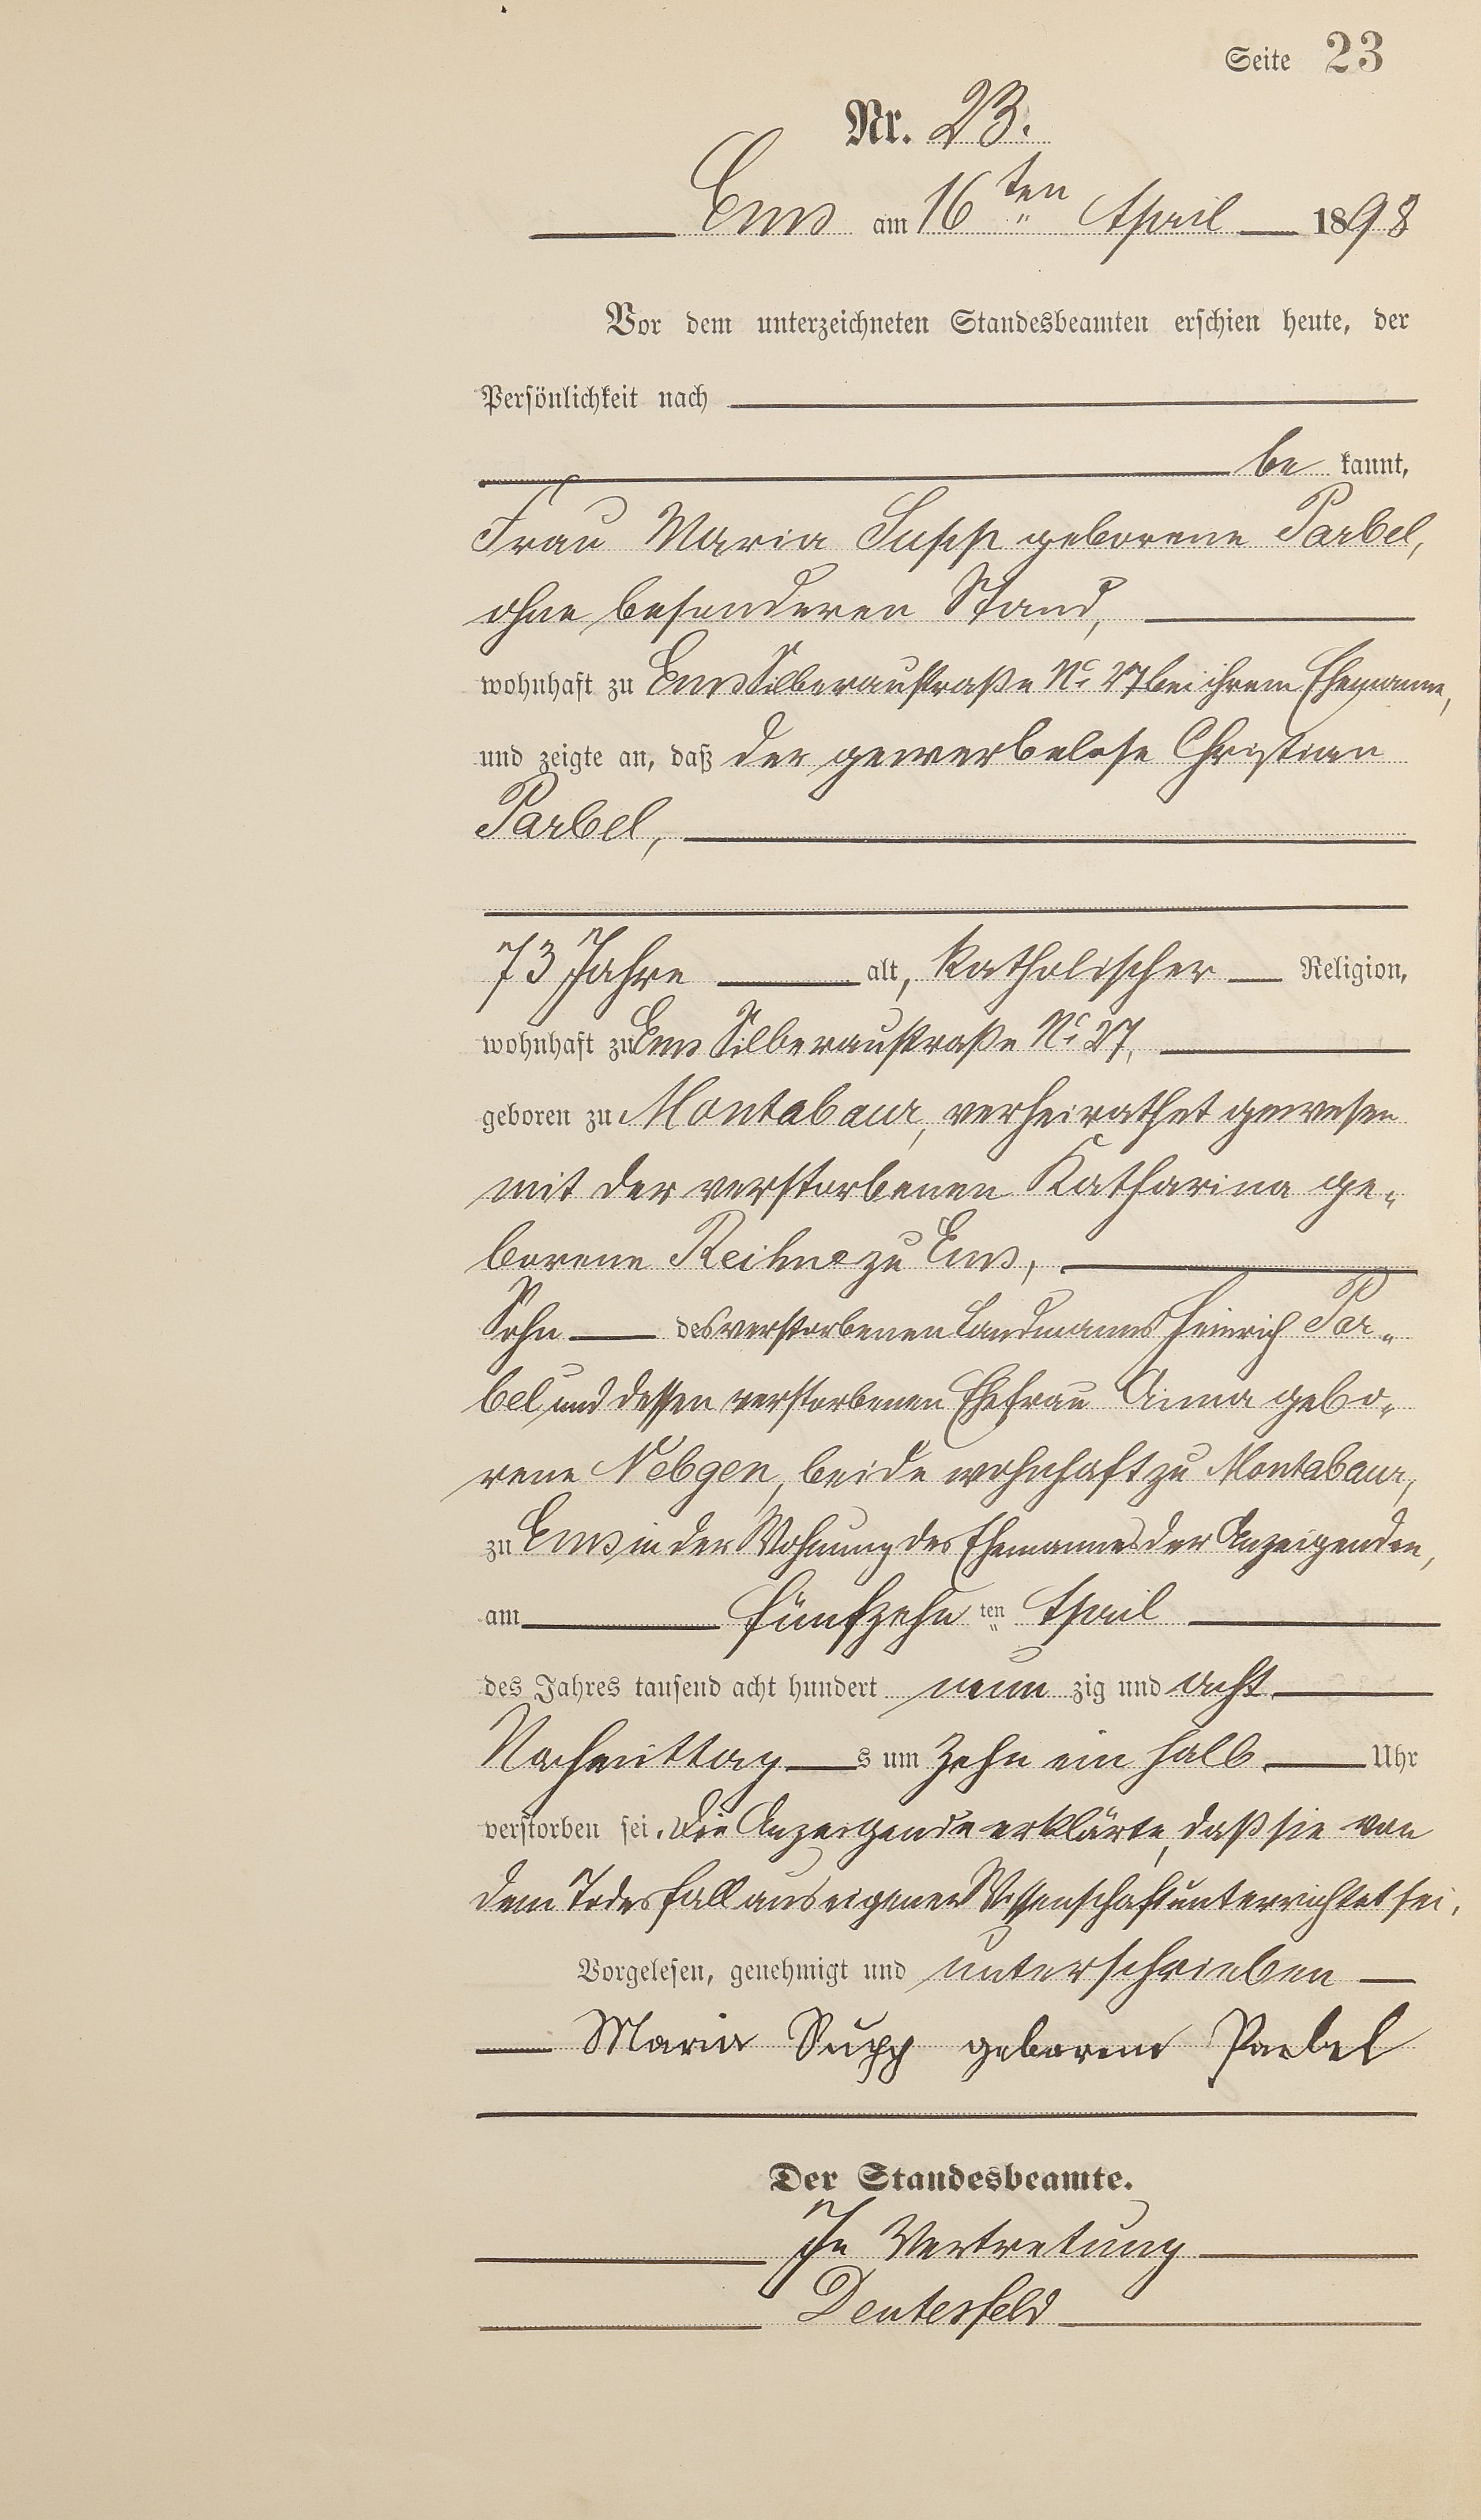 Seite 23
Nr. 23.
Ems am 16ten April 1898
Vor dem unterzeichneten Standesbeamten erschien heute, der
Persönlichkeit nach
be kannt,
Frau Maria Supp geborene Parbel,
ohne besonderen Stand,
wohnhaft zu Ems Silberaustraße No 27 bei ihrem Ehemanne,
und zeigte an, daß der gewerbelose Christian
Parbel,
73 Jahre alt, katholischer Religion,
wohnhaft zu Ems Silberaustraße No 27,
geboren zu Montabaur, verheirathet gewesen
mit der verstorbenen Katharina ge-
borene zu Ems,
Sohn des verstorbenen Landmanns Heinrich Par-
bel und dessen verstorbenen Ehefrau Anna gebo-
rene Nebgen, beide wohnhaft zu Montabaur,
zu Ems in der Wohnung des Ehemannes der Anzeigenden,
am fünfzehn ten April
des Jahres tausend acht hundert neun zig und acht
Nachmittag s um zehn ein halb Uhr
verstorben sei. Die Anzeigende erklärte, daß sie von
dem Todesfall aus eigener Wissenschaft unterrichtet sei.
Vorgelesen, genehmigt und unterschrieben
Maria Supp geborene Parbel
Der Standesbeamte.
In Vertretung
Deutesfeld